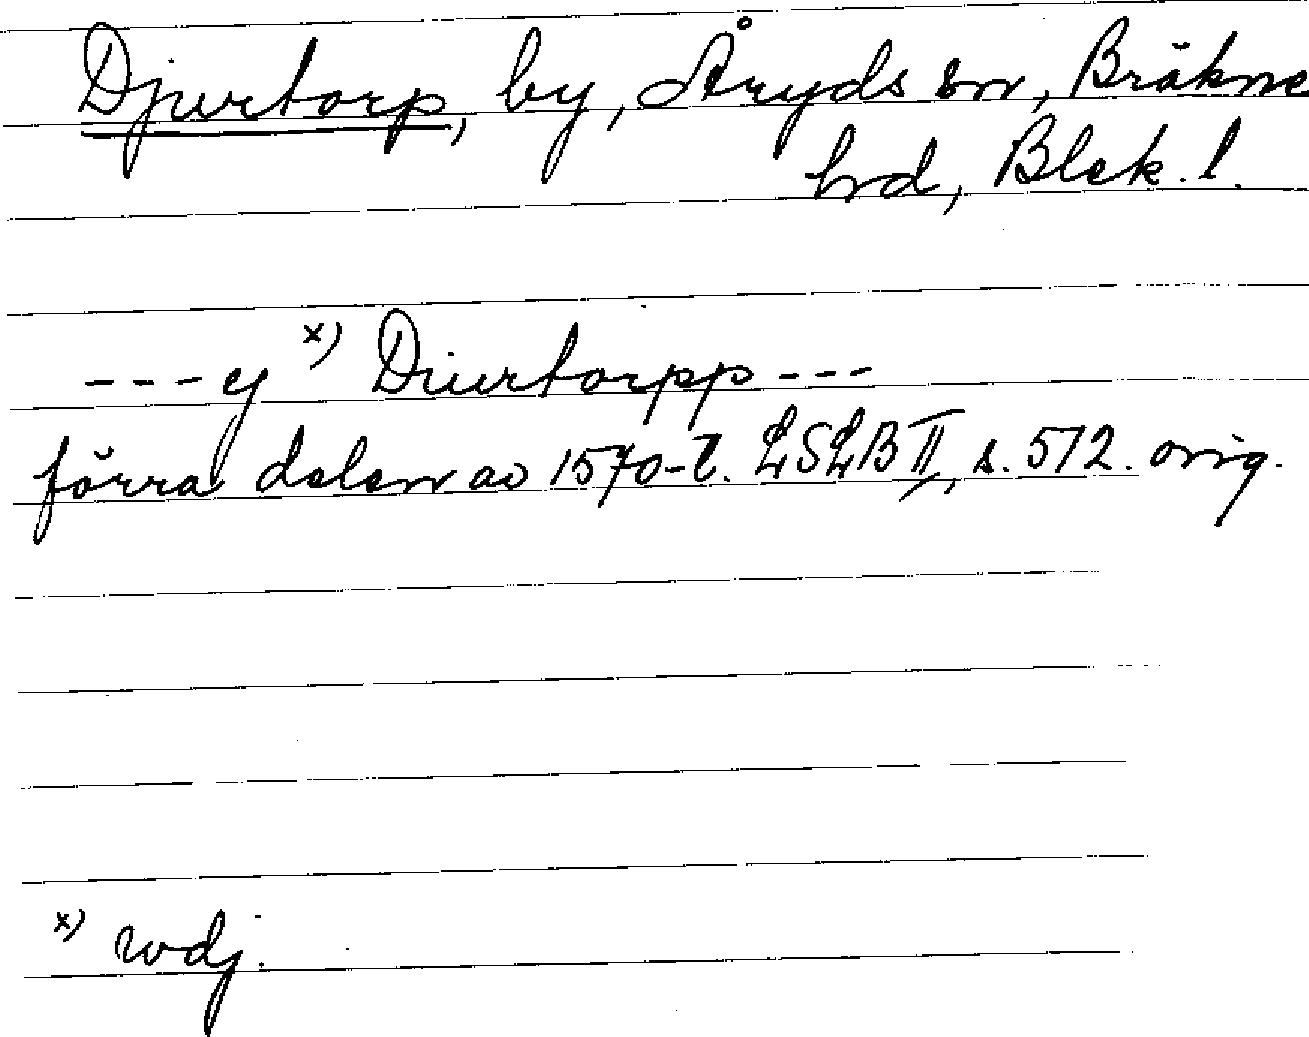 Djurtorp, by, Åryds sn, Bräkne
hrd, Blek. l.
---ij x) Diurtorpp---
förra delen av 1570-t. LSLB II, s. 572. orig.
x) vdj.